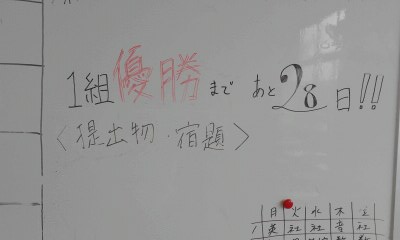 1組優勝まで あと28日!!
<提出物・宿題>
月 火 水 木 土
1 英 社 社 音 社